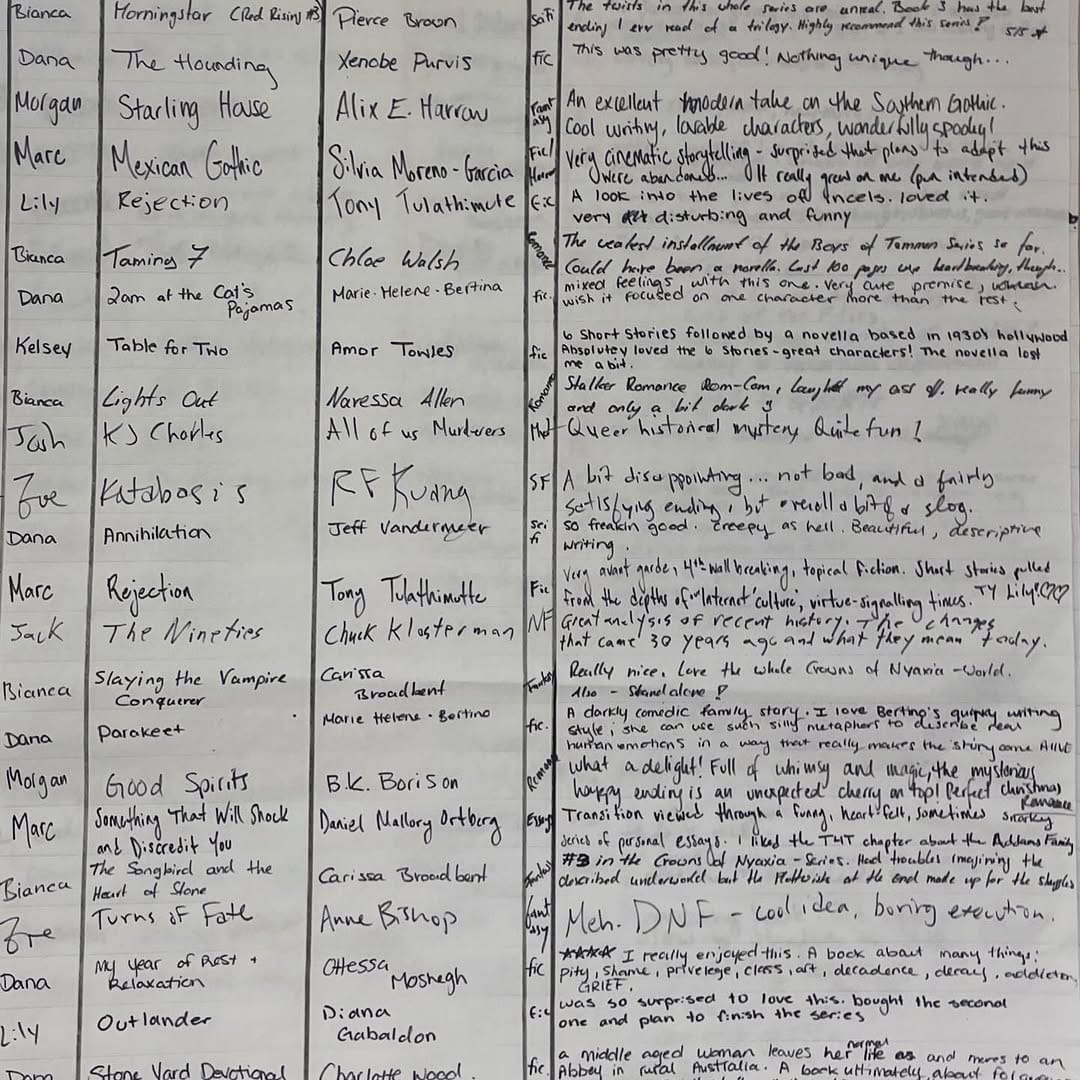 Bianca Morningstar (Red Rising #3) Pierce Brown SciFi The twists in this whole series are unreal. Book 3 has the best
ending I ever read of a trilogy. Highly recommend this series! 5/5 ★
Dana The Hounding Xenobe Purvis fic This was pretty good! Nothing unique though...
Morgan Starling House Alix E. Harrow Fantasy An excellent modern take on the Southern Gothic.
Cool writing, lovable characters, wonderfully spooky!
Marc Mexican Gothic Silvia Moreno-Garcia Fic/Horror Very cinematic storytelling - surprised that plans to adapt this
were abandoned... It really grew on me (pun intended)
Lily Rejection Tony Tulathimute Fic A look into the lives of incels. loved it.
very disturbing and funny
Bianca Taming 7 Chloe Walsh Romance The weakest installment of the Boys of Tommen Series so far.
Could have been a novella. Last 100 pages were heartbreaking, though...
Dana 2am at the Cat's Pajamas Marie-Helene-Bertina fic. mixed feelings with this one. Very cute premise,
wish it focused on one character more than the rest.
Kelsey Table for Two Amor Towles fic 6 short stories followed by a novella based in 1930s hollywood
Absolutey loved the 6 stories - great characters! The novella lost
me a bit.
Bianca Lights Out Naressa Allen Romance Stalker Romance Rom-Com, laughed my ass off. really funny
and only a bit dark :)
Josh KJ Charles All of us Murderers Myst Queer historical mystery Quite fun!
Zoe Katabasis RF Kuang SF A bit disappointing... not bad, and a fairly
satisfying ending, but overall a bit of a slog.
Dana Annihilation Jeff Vandermeer sci fi so freakin good. creepy as hell. Beautiful, descriptive
writing.
Marc Rejection Tony Tulathimutte Fic Very avant garde, 4th wall breaking, topical fiction. Short stories pulled
from the depths of "Internet culture", virtue-signalling times. TY Lily!♡♡
Jack The Nineties Chuck Klosterman NF Great analysis of recent history. The changes
that came 30 years ago and what they mean today.
Bianca Slaying the Vampire Conquerer Carissa Broadbent Fantasy Really nice. Love the whole Crowns of Nyaxia - World.
Also - Standalone!
Dana Parakeet Marie Helene-Bertino fic. A darkly comedic family story. I love Bertino's quirky writing
style; she can use such silly metaphors to describe real
human emotions in a way that really makes the story come ALIVE
Morgan Good Spirits B.K. Borison Romance What a delight! Full of whimsy and magic, the mysterious
happy ending is an unexpected cherry on top! Perfect Christmas
Romance
Marc Something That Will Shock and Discredit You Daniel Mallory Ortberg Essays Transition viewed through a funny, heart-felt, sometimes snarky
series of personal essays. I liked the T4T chapter about the Addams Family
Bianca The Songbird and the Heart of Stone Carissa Broadbent Fantasy #3 in the Crowns of Nyaxia - Series. Had troubles imagining the
described underworld but the Plottwists at the end made up for the struggles
Zoe Turns of Fate Anne Bishop fantasy Meh. DNF - cool idea, boring execution.
Dana My year of Rest + Relaxation Ottessa Moshegh fic ★★★★ I really enjoyed this. A book about many things:
pity, shame, privelege, class, art, decadence, decay, addiction,
GRIEF.
Lily Outlander Diana Gabaldon Fic was so surprised to love this. bought the second
one and plan to finish the series
Dana Stone Yard Devotional Charlotte Wood. fic. a middle aged woman leaves her normal life and moves to an
Abbey in rural Australia. A book ultimately about